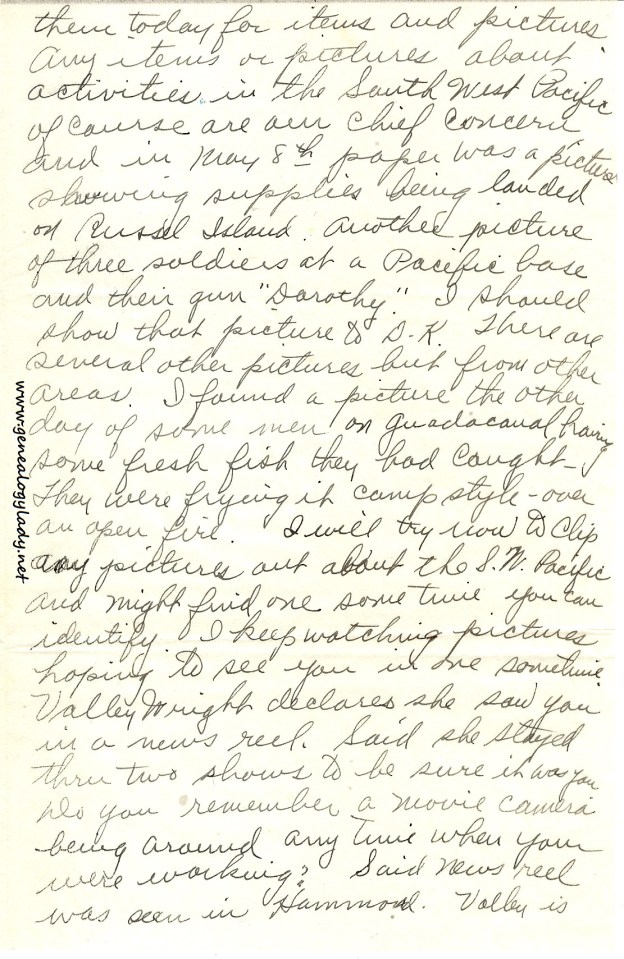 them today for items and pictures
Any items or pictures about
activities in the South West Pacific
of course are our chief concern
and in May 8th paper was a picture
showing supplies being landed
on Russel Island. Another picture
of three soldiers at a Pacific base
and their gun "Dorothy." I should
show that picture to D-K. There are
several other pictures but from other
areas. I found a picture the other
day of some men on Guadacanal having
some fresh fish they had caught-
They were frying it camp style - over
an open fire. I will try now to clip
any pictures out about the S.W. Pacific
and might find one sometime you can
identify. I keep watching pictures
hoping to see you in one sometime.
Valley Wright declares she saw you
in a news reel. Said she stayed
thru two shows to be sure it was you
Do you remember a movie camera
being around any time when you
were working? Said News reel
was seen in Hammond. Valley is
www.genealogylady.net